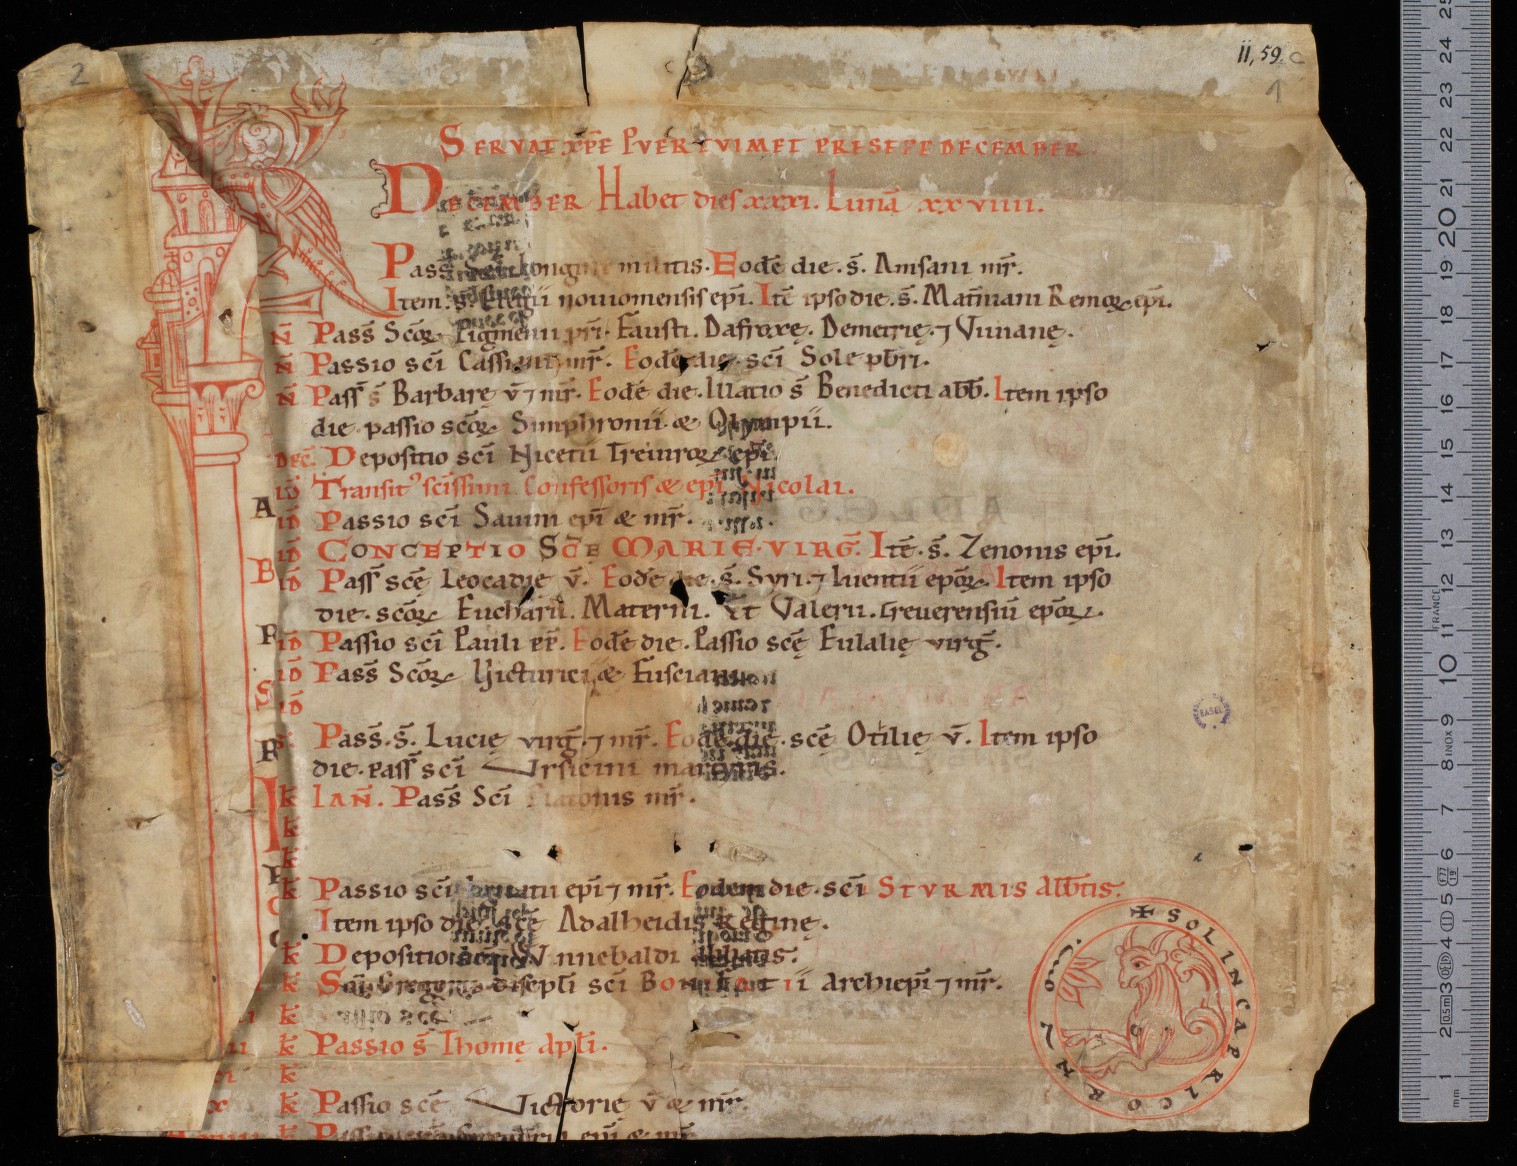 2
ii, 59. c
1
SERVAT XP̄E PVER TVIMET PRESEPE DECEMBER
DECEMBER Habet dies xxxi. Lunā xxviiii.
Pass̄ longini militis. Eodē die. s̄. Ansani mr̄.
Item. s̄. Eligii nouiomensis ep̄i. Itē ipso die. s̄. Remoꝝ ep̄i.
N̄ Pass̄ Scōꝝ Pigmenii pr̄i. Fausti. Dafrosę. Demetrię. ⁊ Viuianę.
N̄ Passio scī Cassiani mr̄. Eodē die. scī Sole pb̄ri.
N̄ Pass̄ s̄ Barbarę v̄ ⁊ mr̄. Eodē die. Illatio s̄ Benedicti abb̄. Item ipso
die passio scōꝝ Simphronii. & Olympii.
DEC̄. Depositio scī Nicetii Treiuroꝝ ep̄i.
A ID̄ Transit᾽ scīssimi Confessoris & ep̄i Nicolai.
ID̄ Passio scī Sauini ep̄i & mr̄.
ID̄ CONCEPTIO SC̄E MARIE. VIRḠ. Itē. s̄. Zenonis ep̄i.
B ID̄ Pass̄ scē Leocadię v̄. Eodē die. s̄. Syri. ⁊ Iuentii ep̄oꝝ. Item ipso
die. scōꝝ Eucharii. Materni. Et Valerii. treuerensiū ep̄oꝝ.
F ID̄ Passio scī Pauli Eodē die. Passio scę Eulalię virḡ.
ID̄ Pass̄ Scōꝝ Victurici & Fusciani
S ID̄
R Pass̄. s̄. Lucię virḡ. ⁊ mr̄. Eodē die. scē Otilię v̄. Item ipso
die. pass̄ scī Vrsicini martyris.
k̄ IAN̄. Pass̄ Scī mr̄.
k̄
k̄
k̄ Passio scī ep̄i ⁊ mr̄. Eodem die. scī STVRMIS abb̄tis.
Item ipso die. scē Adalheidis Reginę.
k̄ Depositio Wnnebaldi abbatis.
k̄ Gregorii discipl̄i scī Bonifatii archiep̄i ⁊ mr̄.
k̄
k̄ Passio s̄ Thomę apl̄i.
k̄
k̄ Passio scē Victorię v̄ & mr̄.
k̄ ep̄i & mr̄
✠ SOL IN CAPRICORN
BASEL